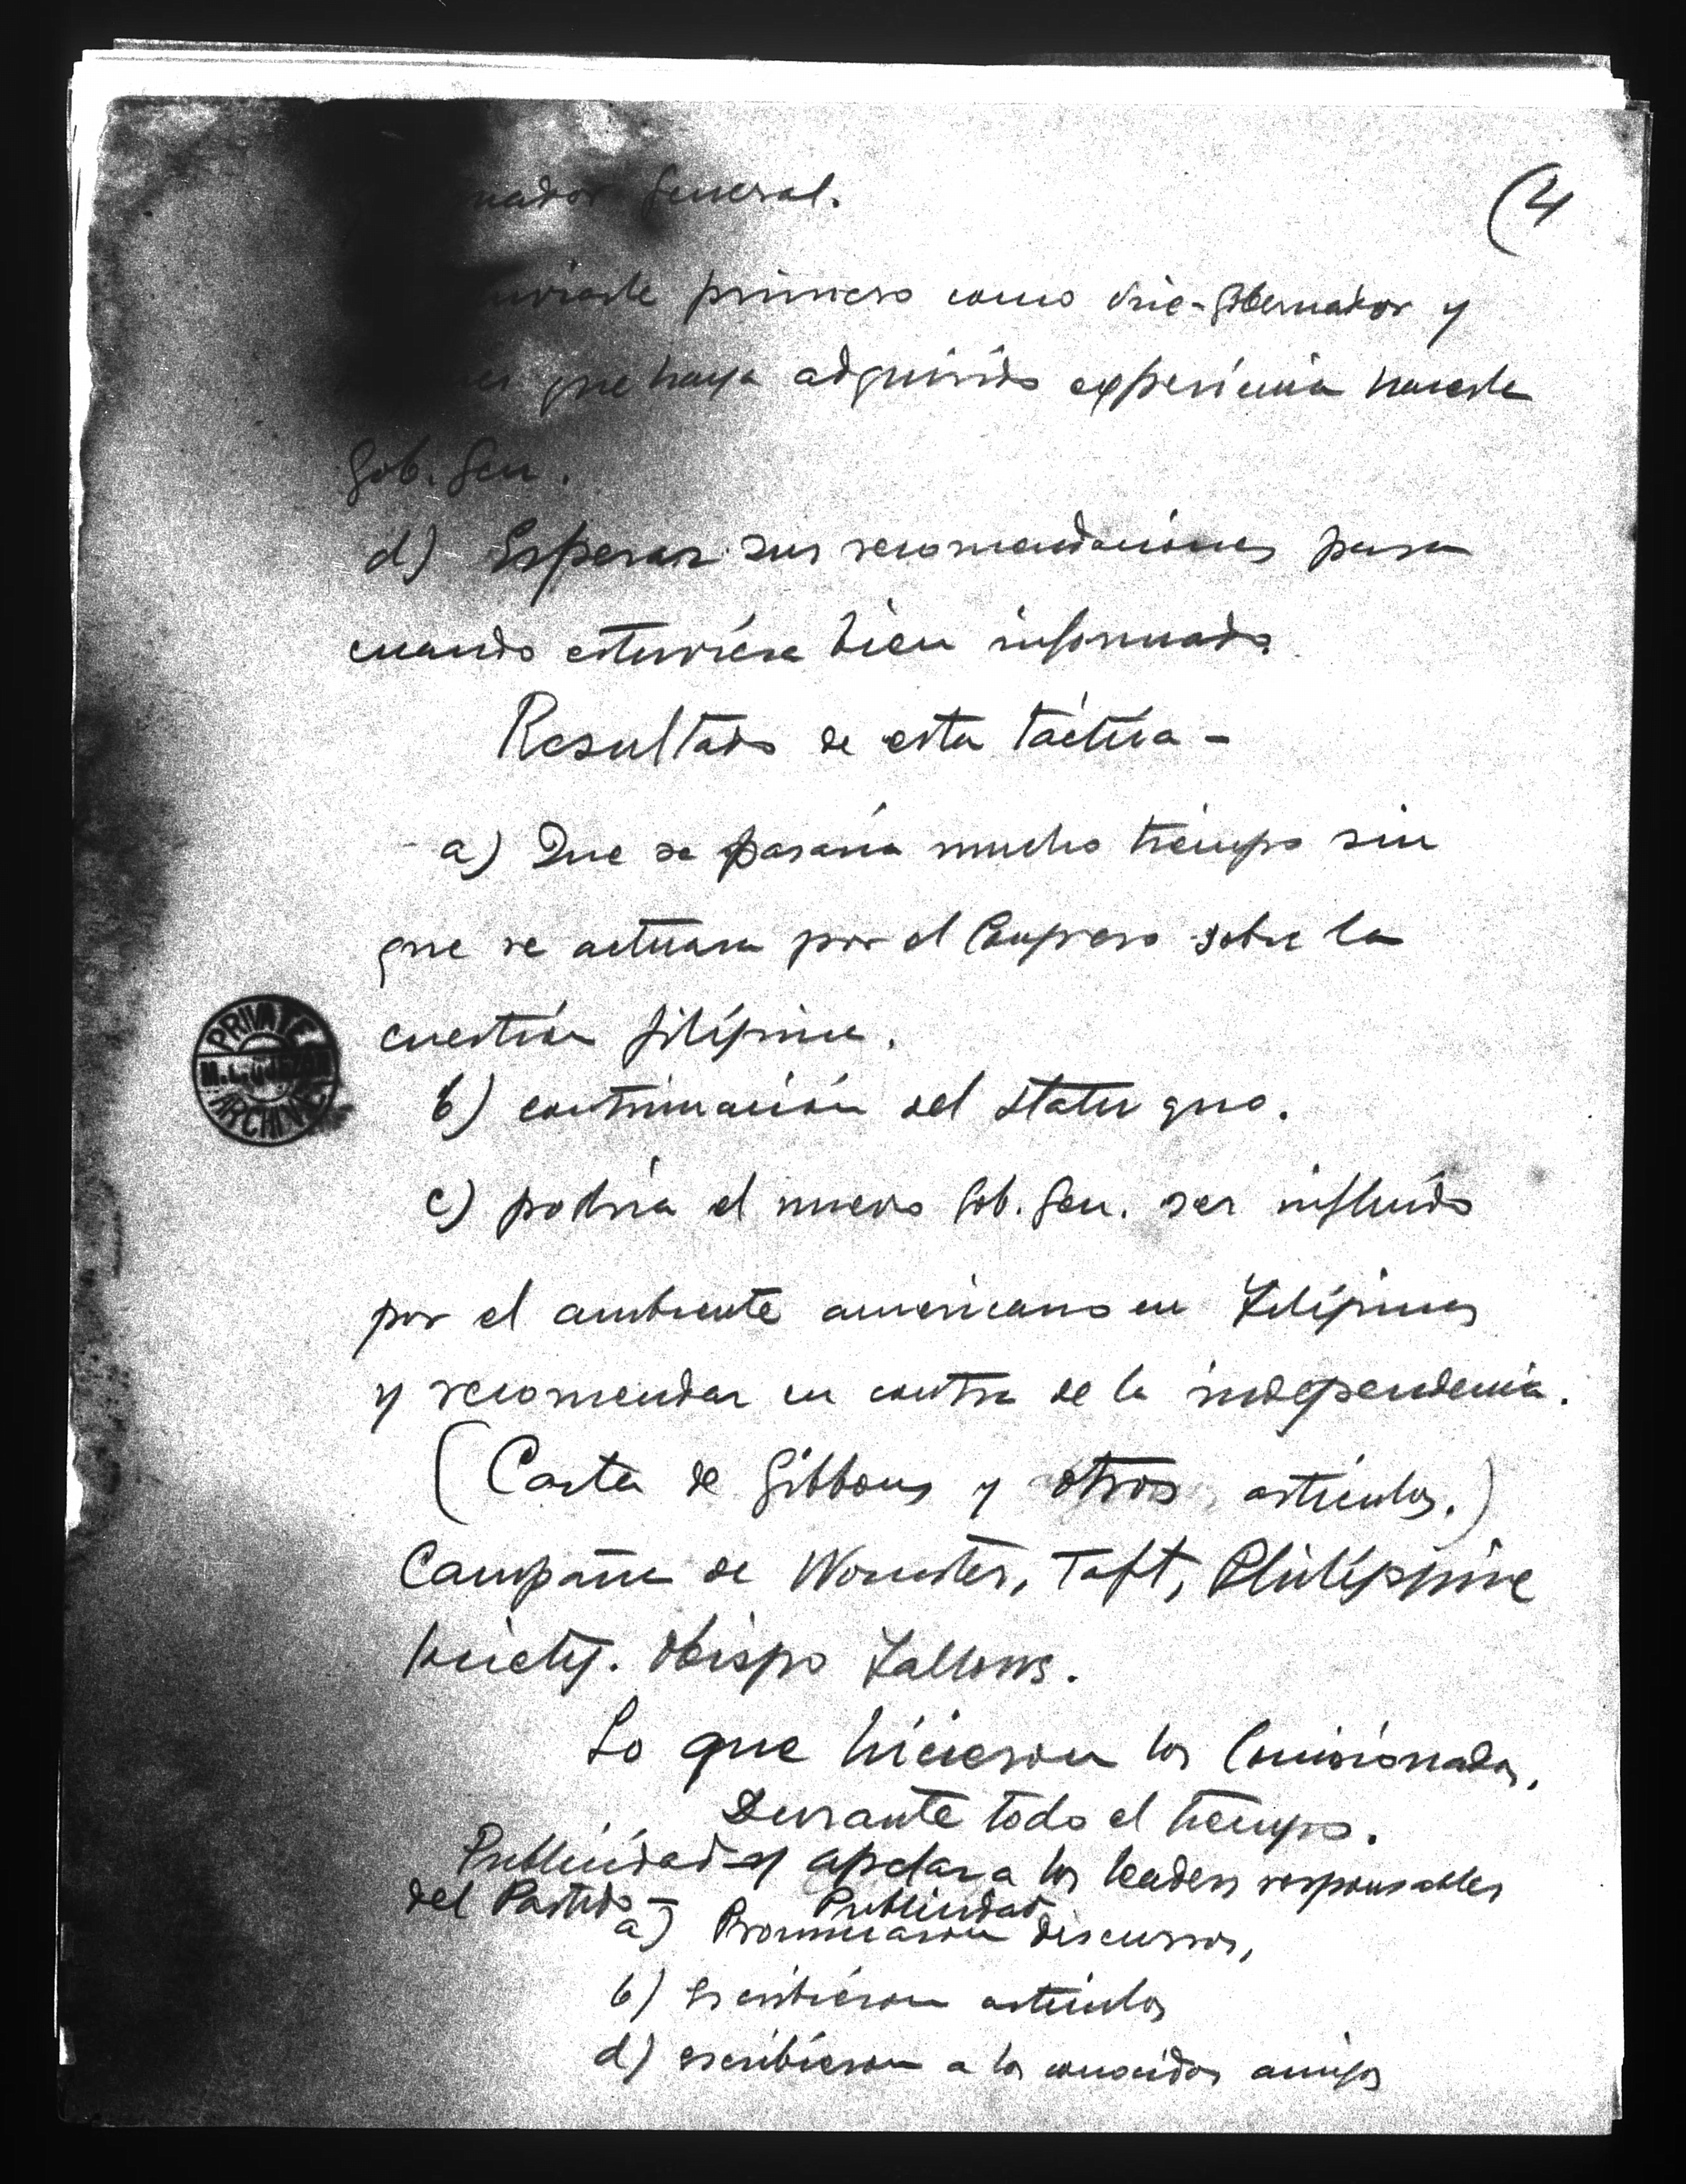 (4
nador General.
enviarle primero como vice-gobernador y
que haya adquirido experiencia hacerle
Gob. Gen.
d) Esperar sus recomendaciones para
cuando estuviera bien informado.
Resultado de esta táctica -
a) Que se pasaria mucho tiempo sin
que se actuara por el Congreso sobre la
cuestión filipina.
PRIVATE
ARCHIVE
b) continuación del statu quo.
c) podria el nuevo Gob. Gen. ser influido
por el ambiente americano en Filipinas
y recomendar en contra de la independencia.
(Carta de Gibbons y otros artículos.)
Campaña de Worcester, Taft, Philippine
Society. Obispo Fallows.
Lo que hicieron los Comisionados.
Durante todo el tiempo.
Publicidad y apelar a los leaders responsables
del Partido - Publicidad
a) Pronunciaron discursos,
b) escribieron artículos
d) escribieron a los conocidos amigos